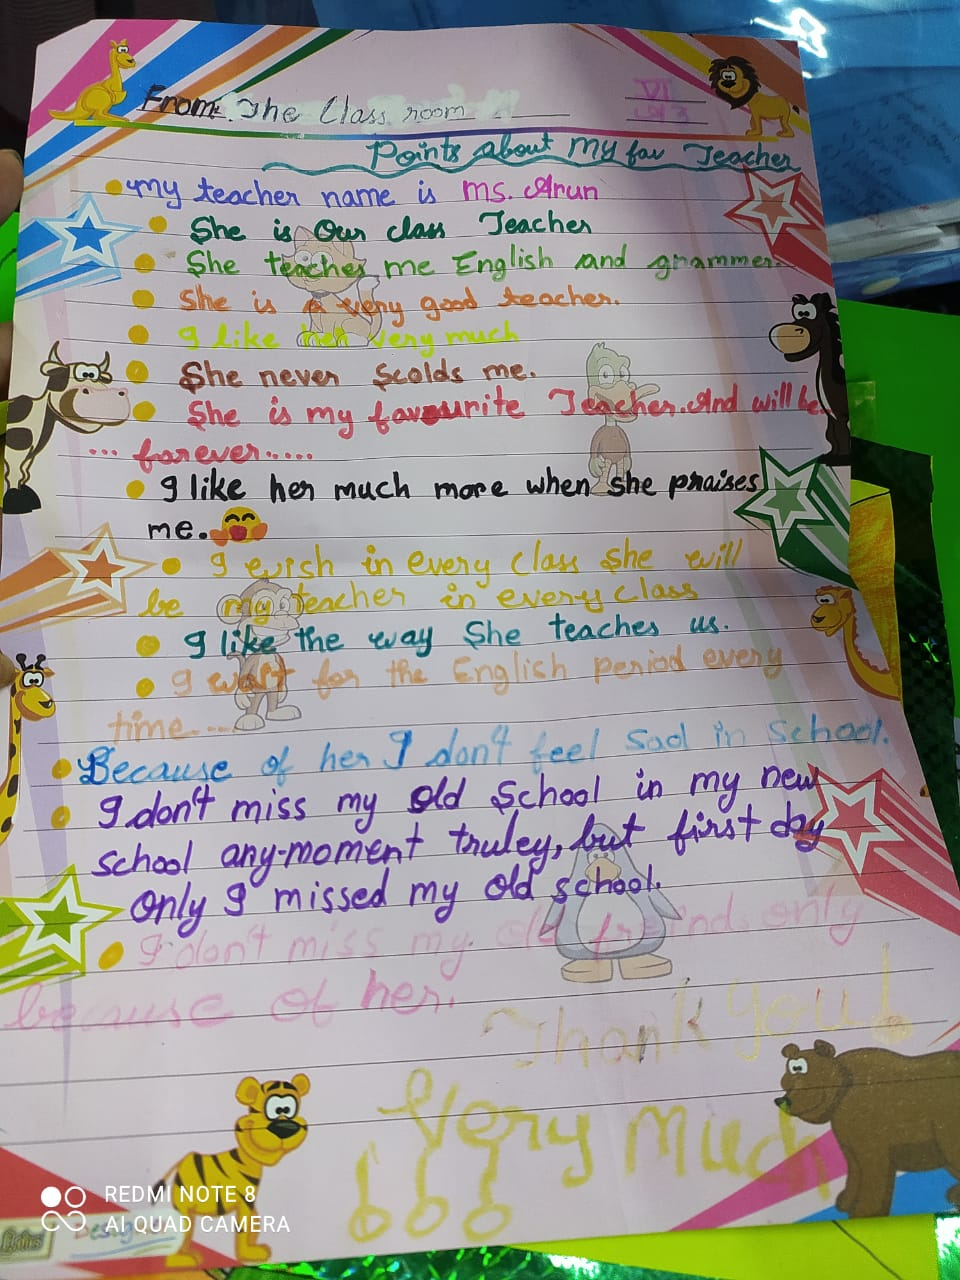 From: The Class room
VI
Points about my fav Teacher
my teacher name is Ms. Arun
She is Our class Teacher
She teaches me English and grammer.
She is a very good teacher.
I like her very much
She never Scolds me.
She is my favourite Teacher. And will be
... forever.....
I like her much more when she praises
me.
I wish in every class she will
be my teacher in every class
I like the way She teaches us.
I wait for the English period every
time...
Because of her I don't feel Sad in School.
I don't miss my old School in my new
school any-moment truley, but first day
only I missed my old school.
I don't miss my old friends only
because of her.
Thank you!
Very Much
REDMI NOTE 8
AI QUAD CAMERA